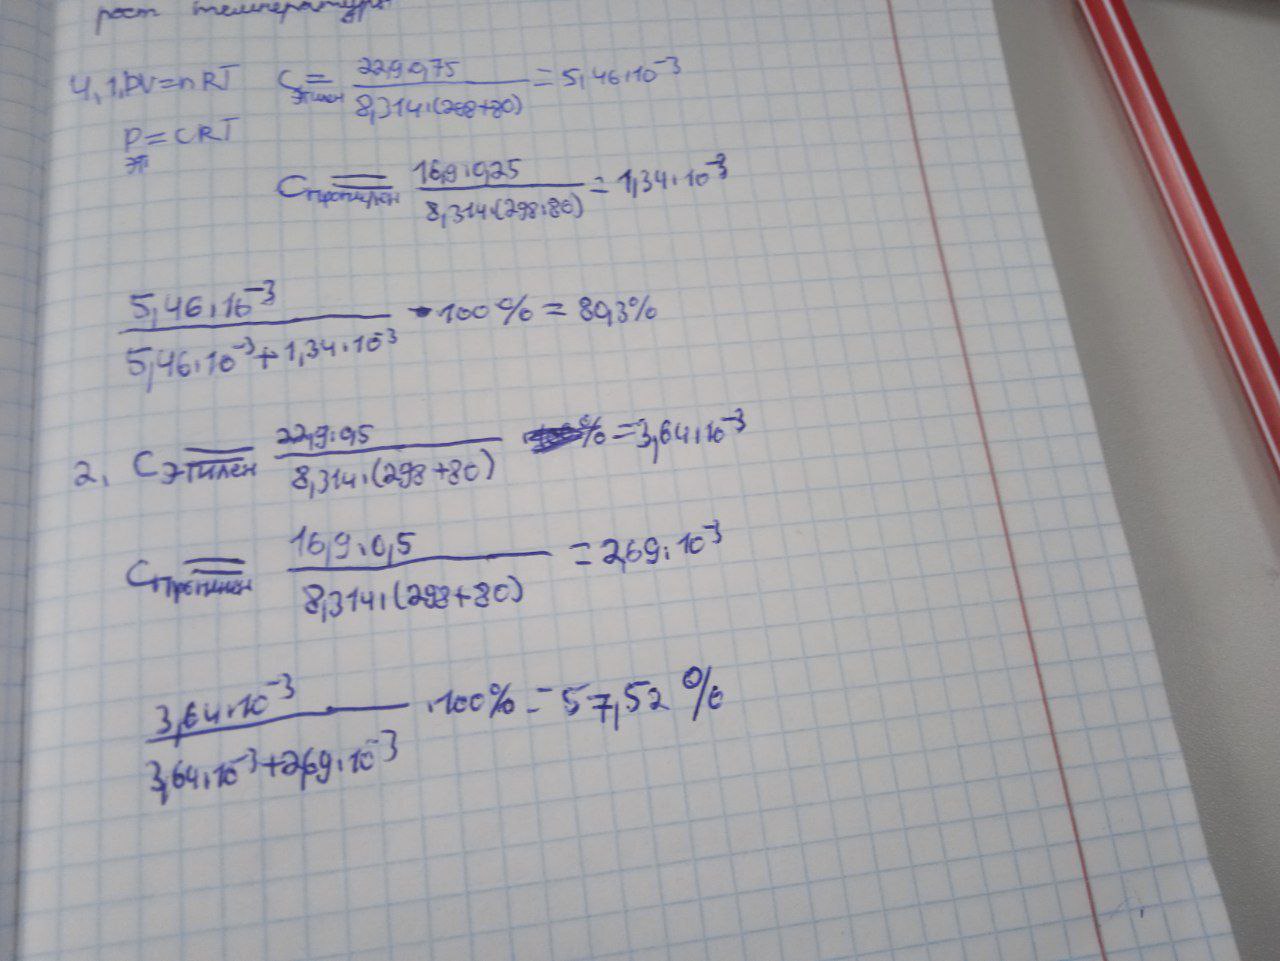 рост температуры
4, 1, PV=nRT C этилен = 22,9·0,75 / 8,314·(298+80) = 5,46·10⁻³
P эт = CRT
C пропилен = 16,9·0,25 / 8,314·(298·80) = 1,34·10⁻³
5,46·10⁻³ / 5,46·10⁻³+1,34·10⁻³ · 100% = 80,3%
2, C этилен = 22,9·0,5 / 8,314·(298+80) = 3,64·10⁻³
C пропилен = 16,9·0,5 / 8,314·(298+80) = 2,69·10⁻³
3,64·10⁻³ / 3,64·10⁻³+2,69·10⁻³ ·100% = 57,52 %